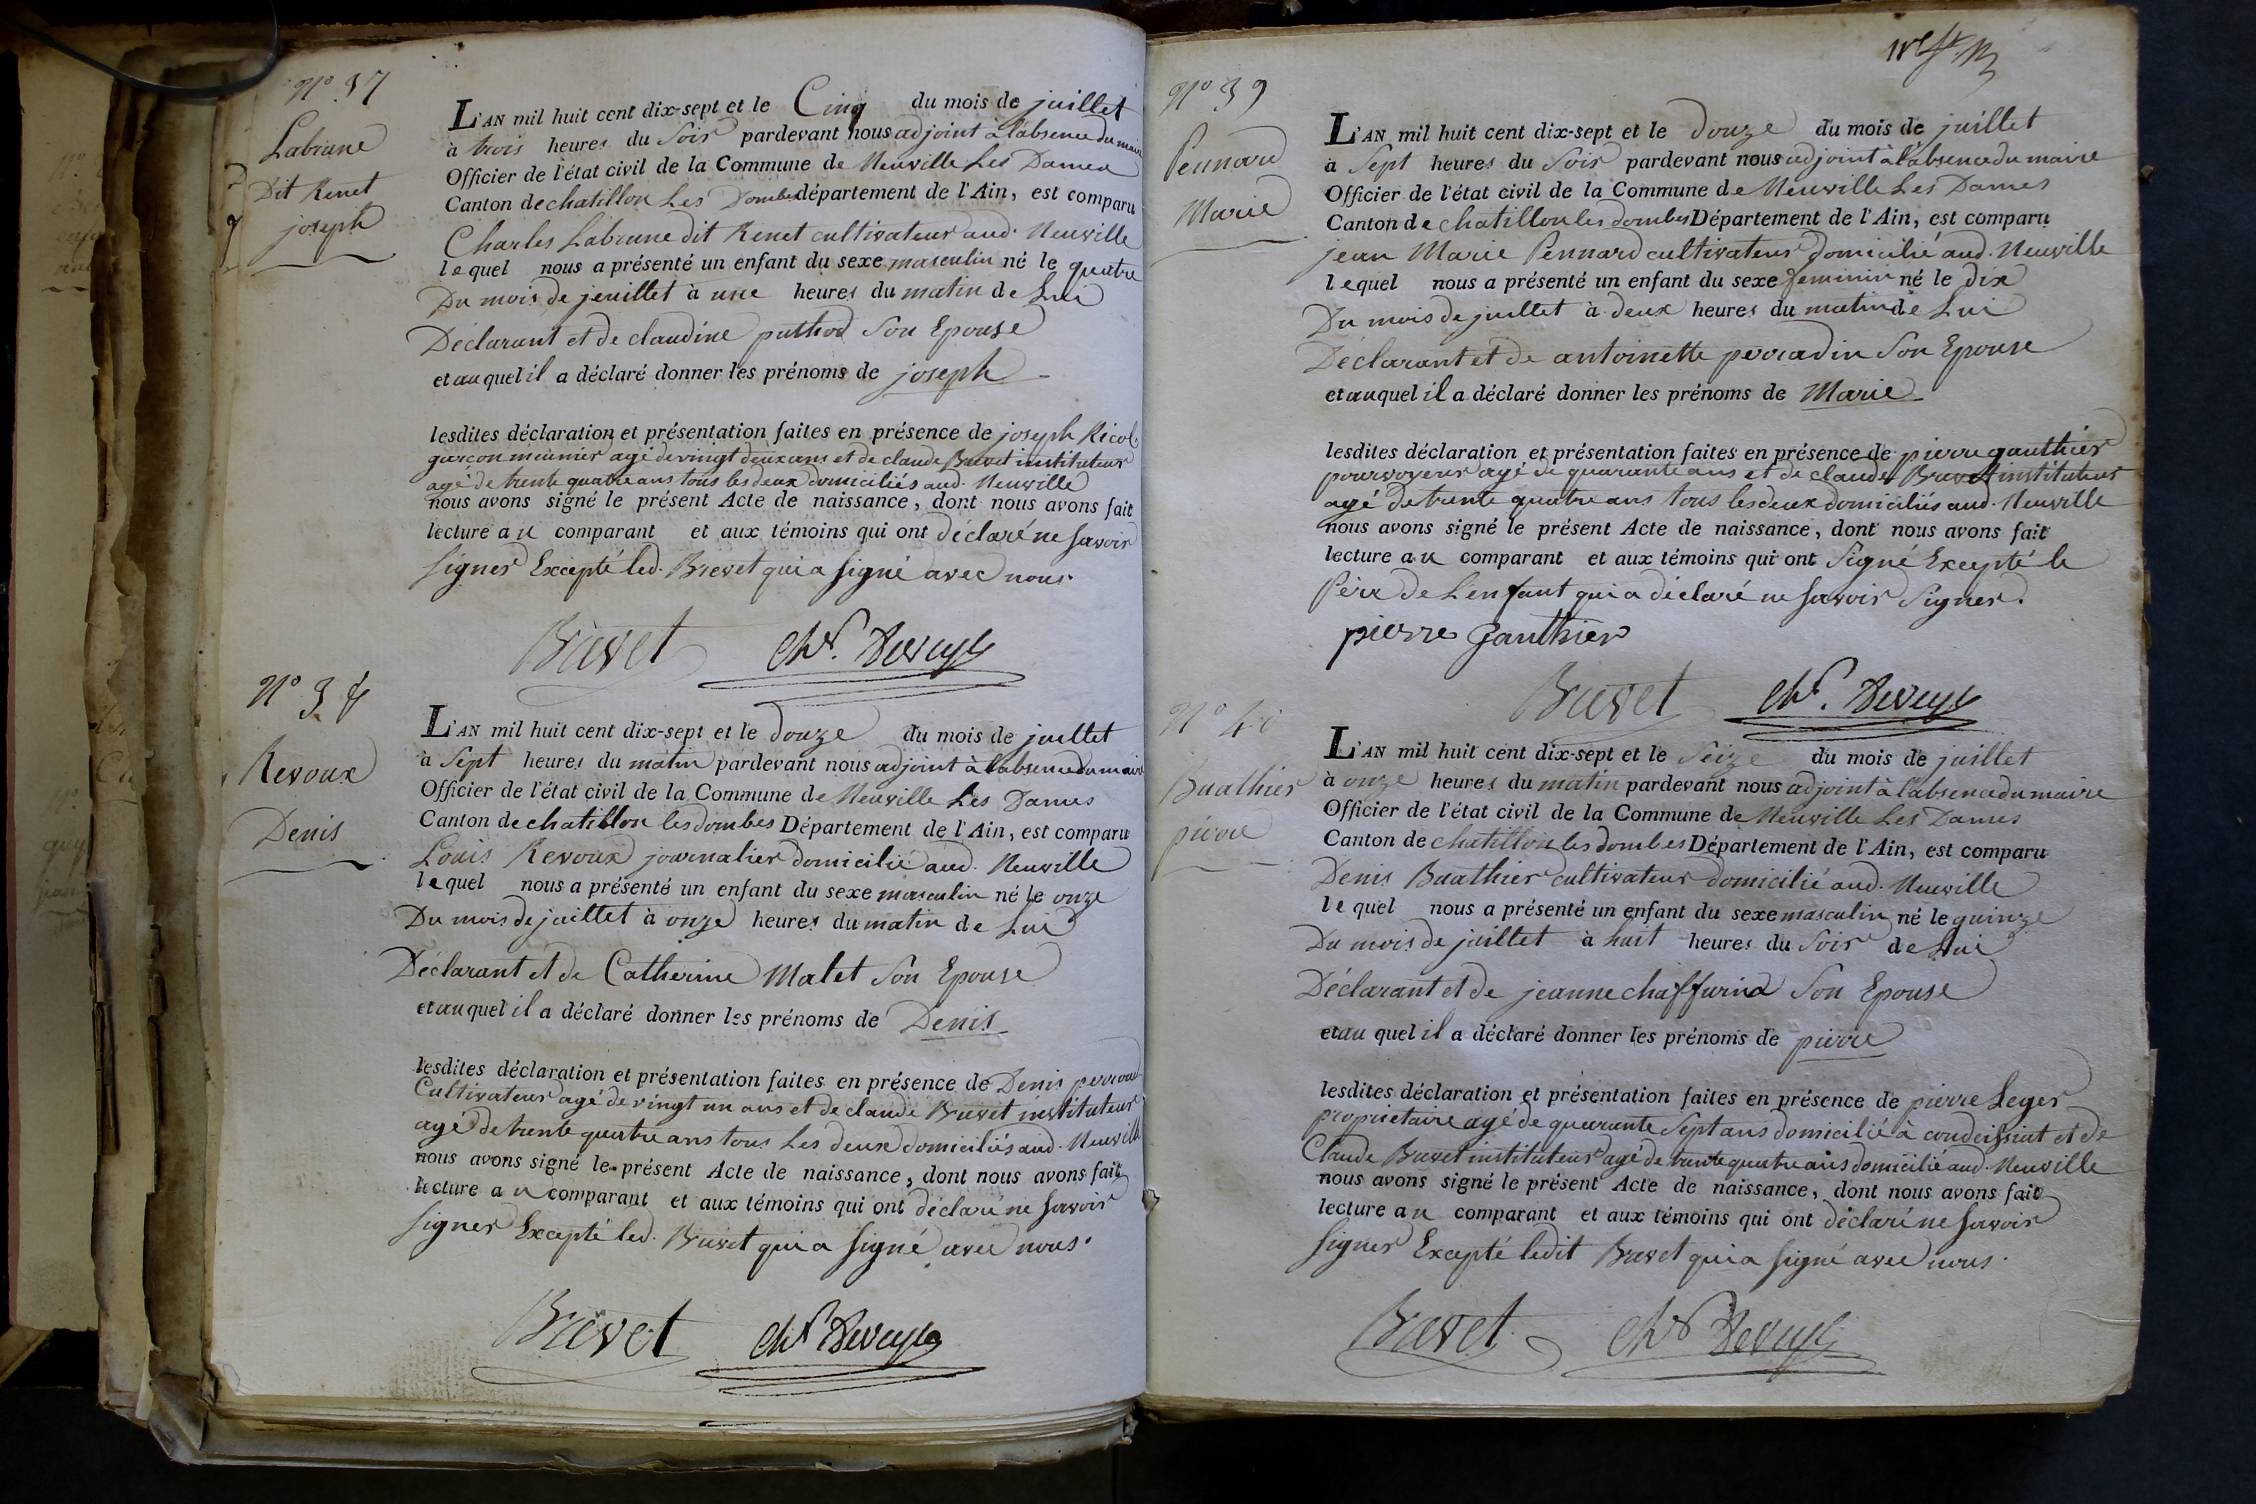 N° 37
Labrune
Dit Renet
joseph
L'AN mil huit cent dix-sept et le Cinq du mois de juillet
à trois heures du Soir pardevant nous adjoint à l'absence du maire
Officier de l'état civil de la Commune de Neuville Les Dames
Canton de chatillon Les Dombes département de l'Ain, est comparu
Charles Labrune dit Renet cultivateur aud. Neuville
lequel nous a présenté un enfant du sexe masculin né le quatre
Du mois de jeuillet à une heures du matin de Lui
Déclarant et de claudine puthod Son Epouse
et au quel il a déclaré donner les prénoms de joseph
lesdites déclaration et présentation faites en présence de joseph Ricol
garcon meunier agé de vingt deux ans et de claude Brevet instituteur
agé de trente quatre ans tous les deux domiciliés aud. Neuville
nous avons signé le présent Acte de naissance, dont nous avons fait
lecture au comparant et aux témoins qui ont déclaré ne savoir
signer Excepté led. Brevet qui a signé avec nous.
Brevet
N° 38
Revoux
Denis
L'AN mil huit cent dix-sept et le douze du mois de juillet
à Sept heures du matin pardevant nous adjoint à l'absence du maire
Officier de l'état civil de la Commune de Neuville Les Dames
Canton de chatillon les dombes Département de l'Ain, est comparu
Louis Revoux journalier domicilié aud. Neuville
lequel nous a présenté un enfant du sexe masculin né le onze
Du mois de juillet à onze heures du matin de Lui
Déclarant et de Catherine Malet Son Epouse
et au quel il a déclaré donner les prénoms de Denis
lesdites déclaration et présentation faites en présence de Denis
Cultivateur agé de vingt un ans et de claude Brevet instituteur
agé de trente quatre ans tous Les deux domiciliés aud. Neuville
nous avons signé le présent Acte de naissance, dont nous avons fait
lecture au comparant et aux témoins qui ont déclaré ne savoir
signer Excepté led. Brevet qui a signé avec nous.
Brevet
N° 39
Pennard
Marie
L'AN mil huit cent dix-sept et le douze du mois de juillet
à Sept heures du Soir pardevant nous adjoint à l'absence du maire
Officier de l'état civil de la Commune de Neuville Les Dames
Canton de chatillon les dombes Département de l'Ain, est comparu
jean Marie Pennard cultivateur domicilié aud. Neuville
lequel nous a présenté un enfant du sexe feminin né le dix
Du mois de juillet à deux heures du matin de Lui
Déclarant et de antoinette perradin Son Epouse
et au quel il a déclaré donner les prénoms de Marie
lesdites déclaration et présentation faites en présence de pierre gauthier
pourvoyeur agé de quarante ans et de claude Brevet instituteur
agé de trente quatre ans tous les deux domiciliés aud. Neuville
nous avons signé le présent Acte de naissance, dont nous avons fait
lecture au comparant et aux témoins qui ont Signé Excepté le
Père de L'enfant qui a déclaré ne savoir Signer.
pierre Gauthier
Brevet
N° 40
Buathier
pierre
L'AN mil huit cent dix-sept et le Seize du mois de juillet
à onze heures du matin pardevant nous adjoint à l'absence du maire
Officier de l'état civil de la Commune de Neuville Les Dames
Canton de chatillon les dombes Département de l'Ain, est comparu
Denis Buathier cultivateur domicilié aud. Neuville
lequel nous a présenté un enfant du sexe masculin né le quinze
Du mois de juillet à huit heures du Soir de Lui
Déclarant et de jeanne chaffurin Son Epouse
et au quel il a déclaré donner les prénoms de pierre
lesdites déclaration et présentation faites en présence de pierre Leger
proprietaire agé de quarante Sept ans domicilié à condeissiat et de
Claude Brevet instituteur agé de trente quatre ans domicilié aud. Neuville
nous avons signé le présent Acte de naissance, dont nous avons fait
lecture au comparant et aux témoins qui ont déclaré ne savoir
signer Excepté ledit Brevet qui a signé avec nous.
Brevet